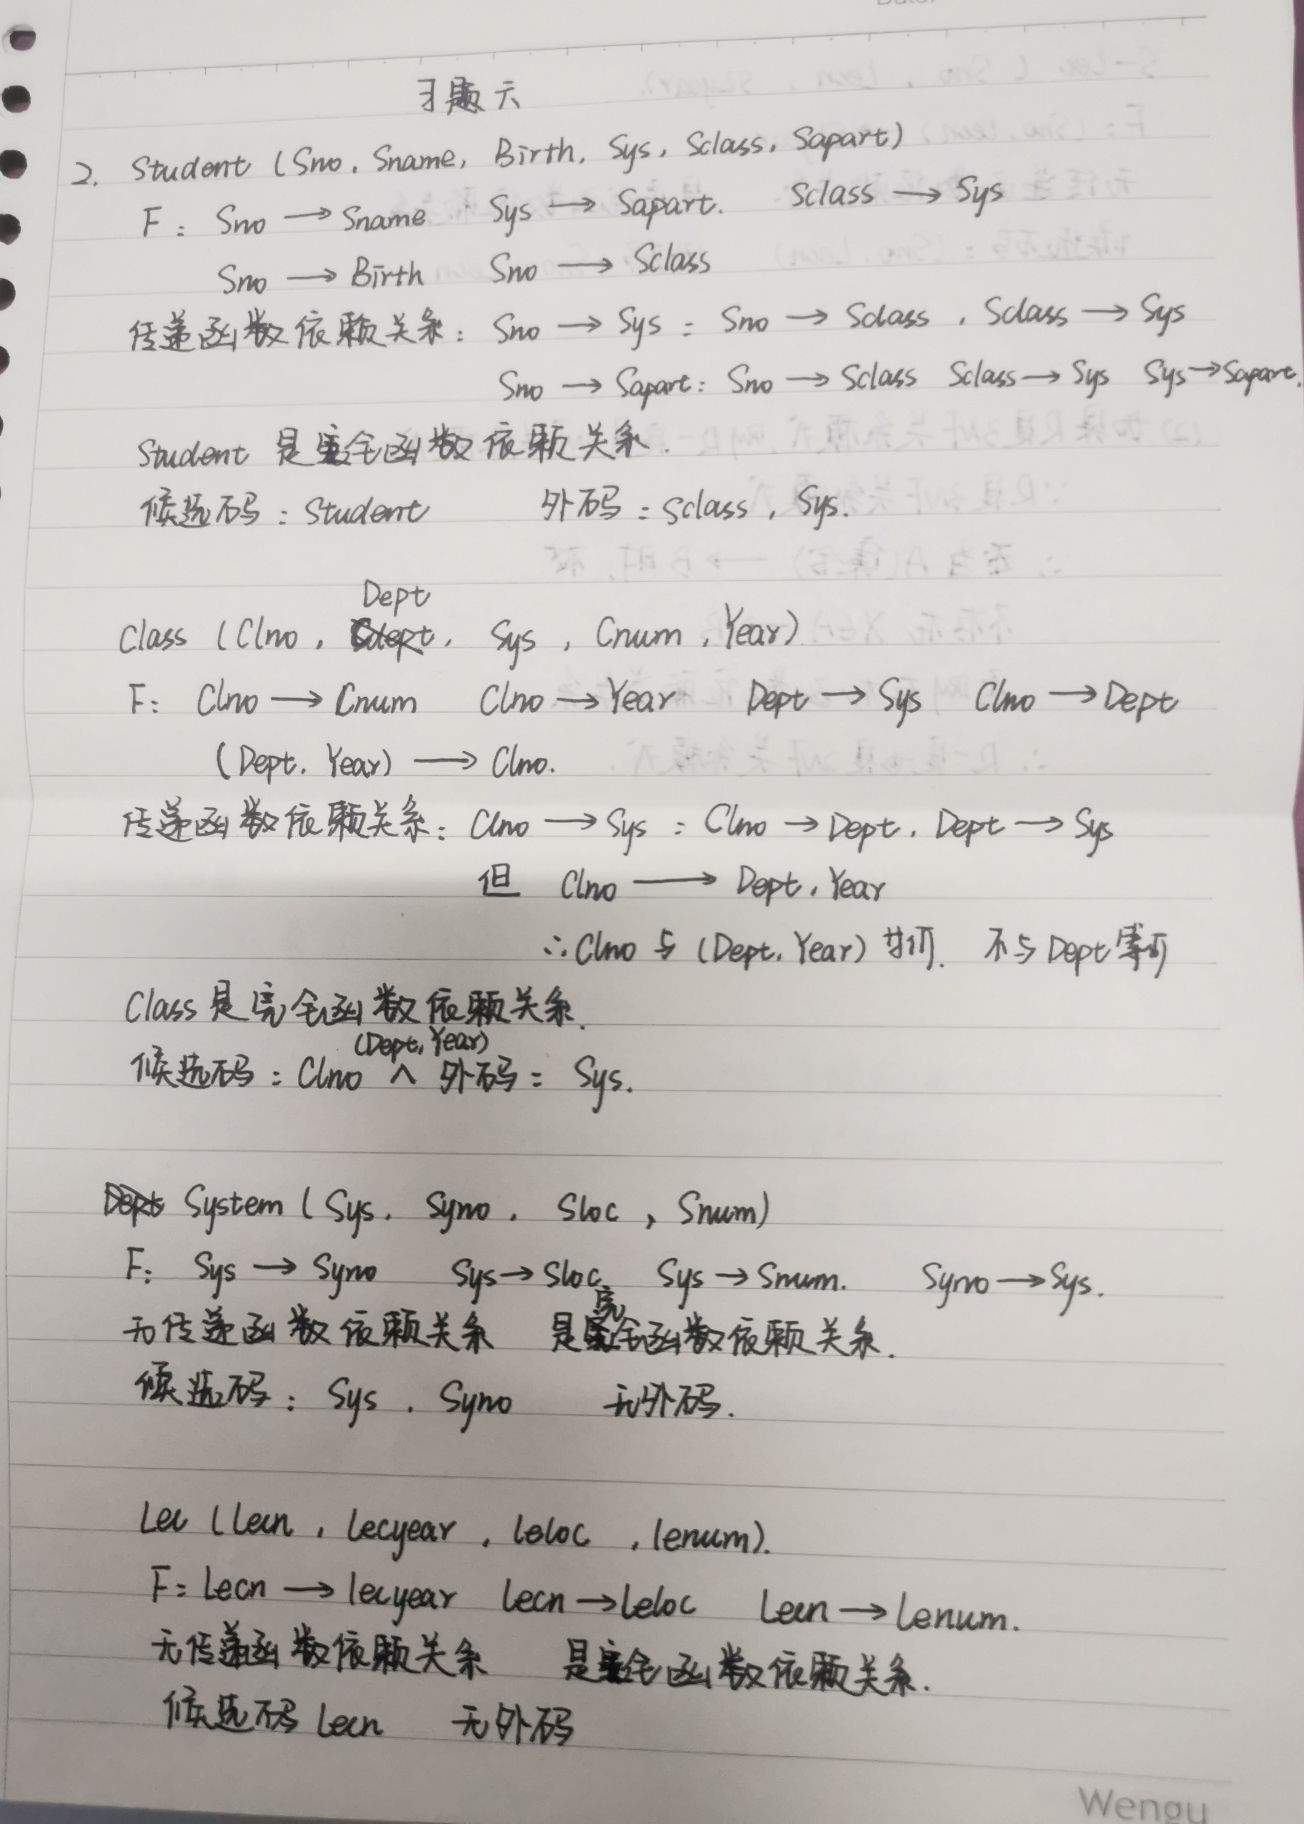 习题六
2. Student (Sno, Sname, Birth, Sys, Sclass, Sapart)
F: Sno → Sname Sys → Sapart. Sclass → Sys
Sno → Birth Sno → Sclass
传递函数依赖关系: Sno → Sys: Sno → Sclass, Sclass → Sys
Sno → Sapart: Sno → Sclass Sclass → Sys Sys → Sapart.
Student 是完全函数依赖关系.
候选码: Student 外码: Sclass, Sys.
Dept
Class (Clno, Sys, Cnum, Year)
F: Clno → Cnum Clno → Year Dept → Sys Clno → Dept
(Dept, Year) → Clno.
传递函数依赖关系: Clno → Sys: Clno → Dept, Dept → Sys
但 Clno → Dept, Year
∴ Clno 与 (Dept, Year) 等价. 不与 Dept 等价
Class 是完全函数依赖关系.
(Dept, Year)
候选码: Clno ∧ 外码: Sys.
System (Sys, Syno, Sloc, Snum)
F: Sys → Syno Sys → Sloc, Sys → Snum. Syno → Sys.
无传递函数依赖关系 是完全函数依赖关系.
候选码: Sys, Syno 无外码.
Lec (Lecn, Lecyear, Leloc, lenum).
F: Lecn → lecyear Lecn → Leloc Lecn → Lenum.
无传递函数依赖关系 是完全函数依赖关系.
候选码 Lecn 无外码
Wengu